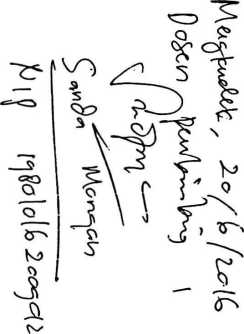 Mengetahui, 20/6/2016
Dosen pembimbing 1
Sanda Mongan
NIP 19801016200912